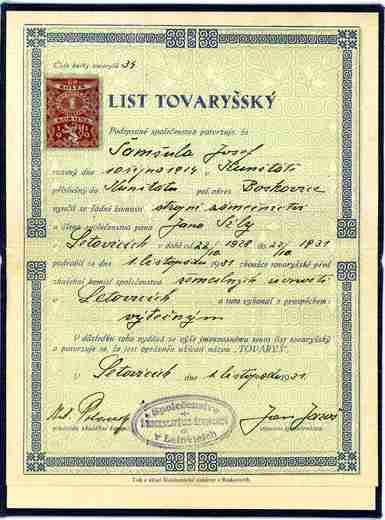 Číslo knihy tovaryšů 34
LIST TOVARYŠSKÝ
Podepsané společenstvo potvrzuje, že
Tomšula Josef
rozený dne 10. října 1914 v Kunštátě
příslušný do Kunštátu pol. okres Boskovice
vyučil se řádně živnosti strojní zámečnictví
u člena společenstva pana Jana
Letovicích v době od 22/10 1928 do 22/10 1931
podrobil se dne 1. listopadu 1931 zkoušce tovaryšské před
zkušební komisí společenstva řemeslných živností
v Letovicích a tuto vykonal s prospěchem:
výtečným
V důsledku toho vydává se výše jmenovanému tento list tovaryšský
a potvrzuje se, že jest oprávněn užívati názvu „TOVARYŠ".
V Letovicích dne 1. listopadu 1931.
Společenstvo
řemeslných živností
v Letovicích
Jan
předseda zkušební komise
starosta společenstva
Tisk a sklad Knihtiskárny v Boskovicích.